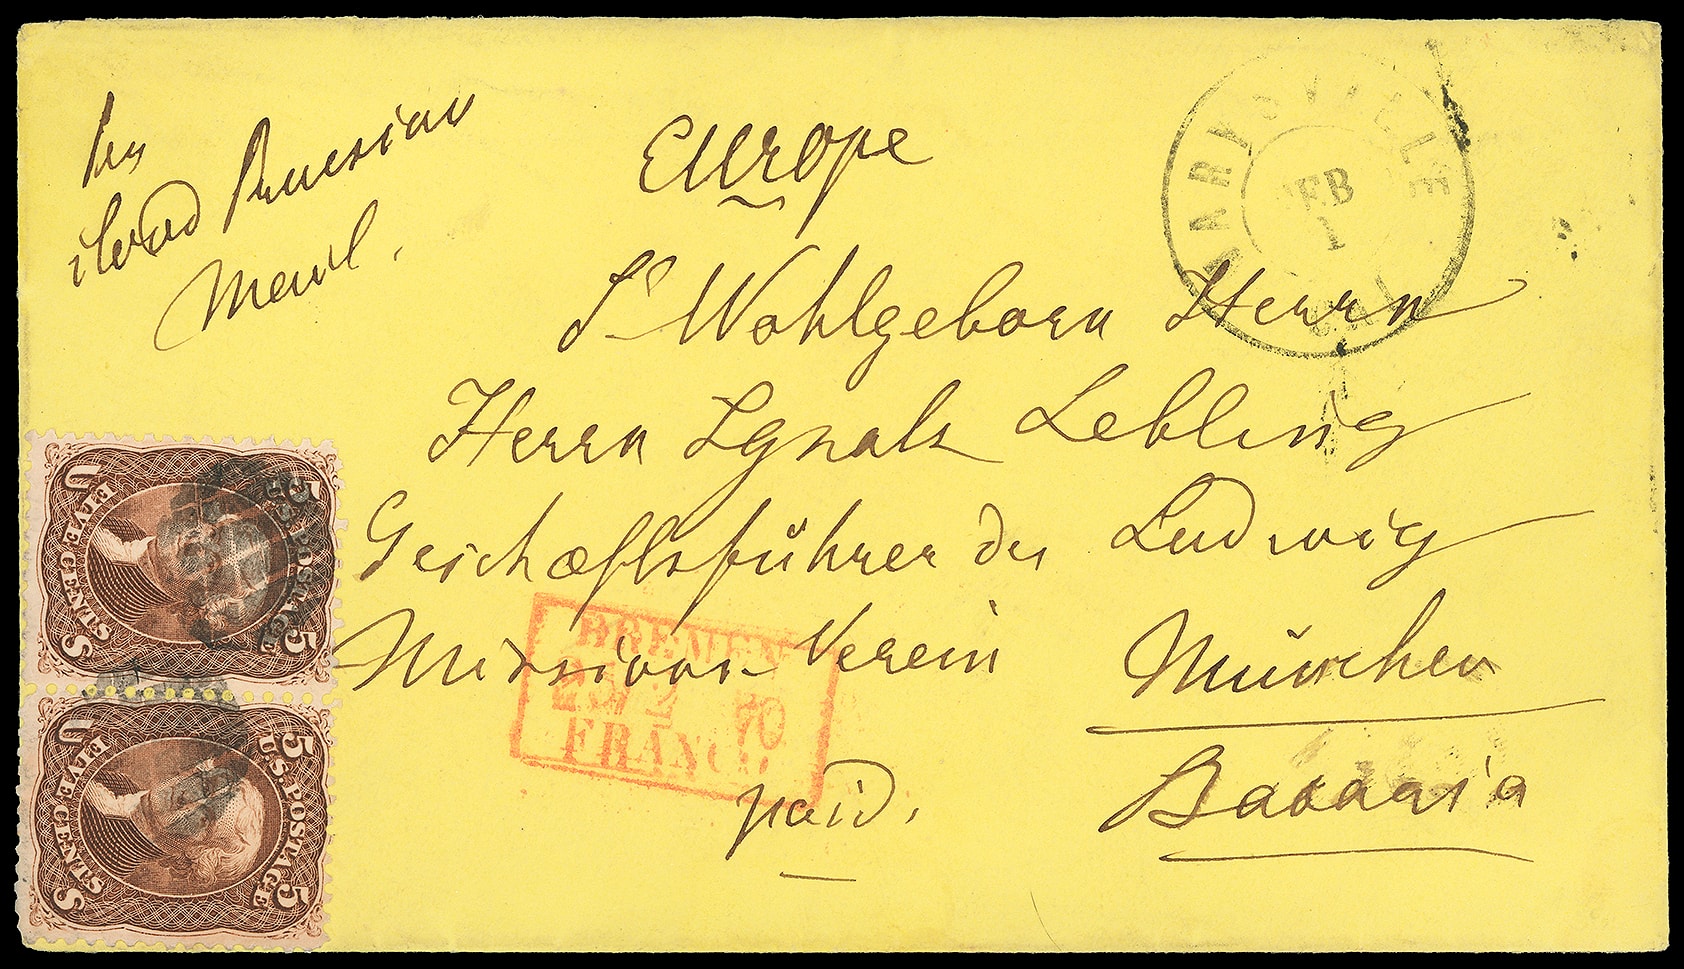 Europe
MARYSVILLE
FEB
1
CAL
Prussian
S' Wohlgeborn Herrn
Herrn Ignatz Lebling
Geschæftsführer des Ludwig
Missions-Verein München
Bavaria
paid.
BREMEN
2 70
FRANCO
5 U.S. POSTAGE 5
U FIVE CENTS S
5 U.S. POSTAGE 5
U FIVE CENTS S